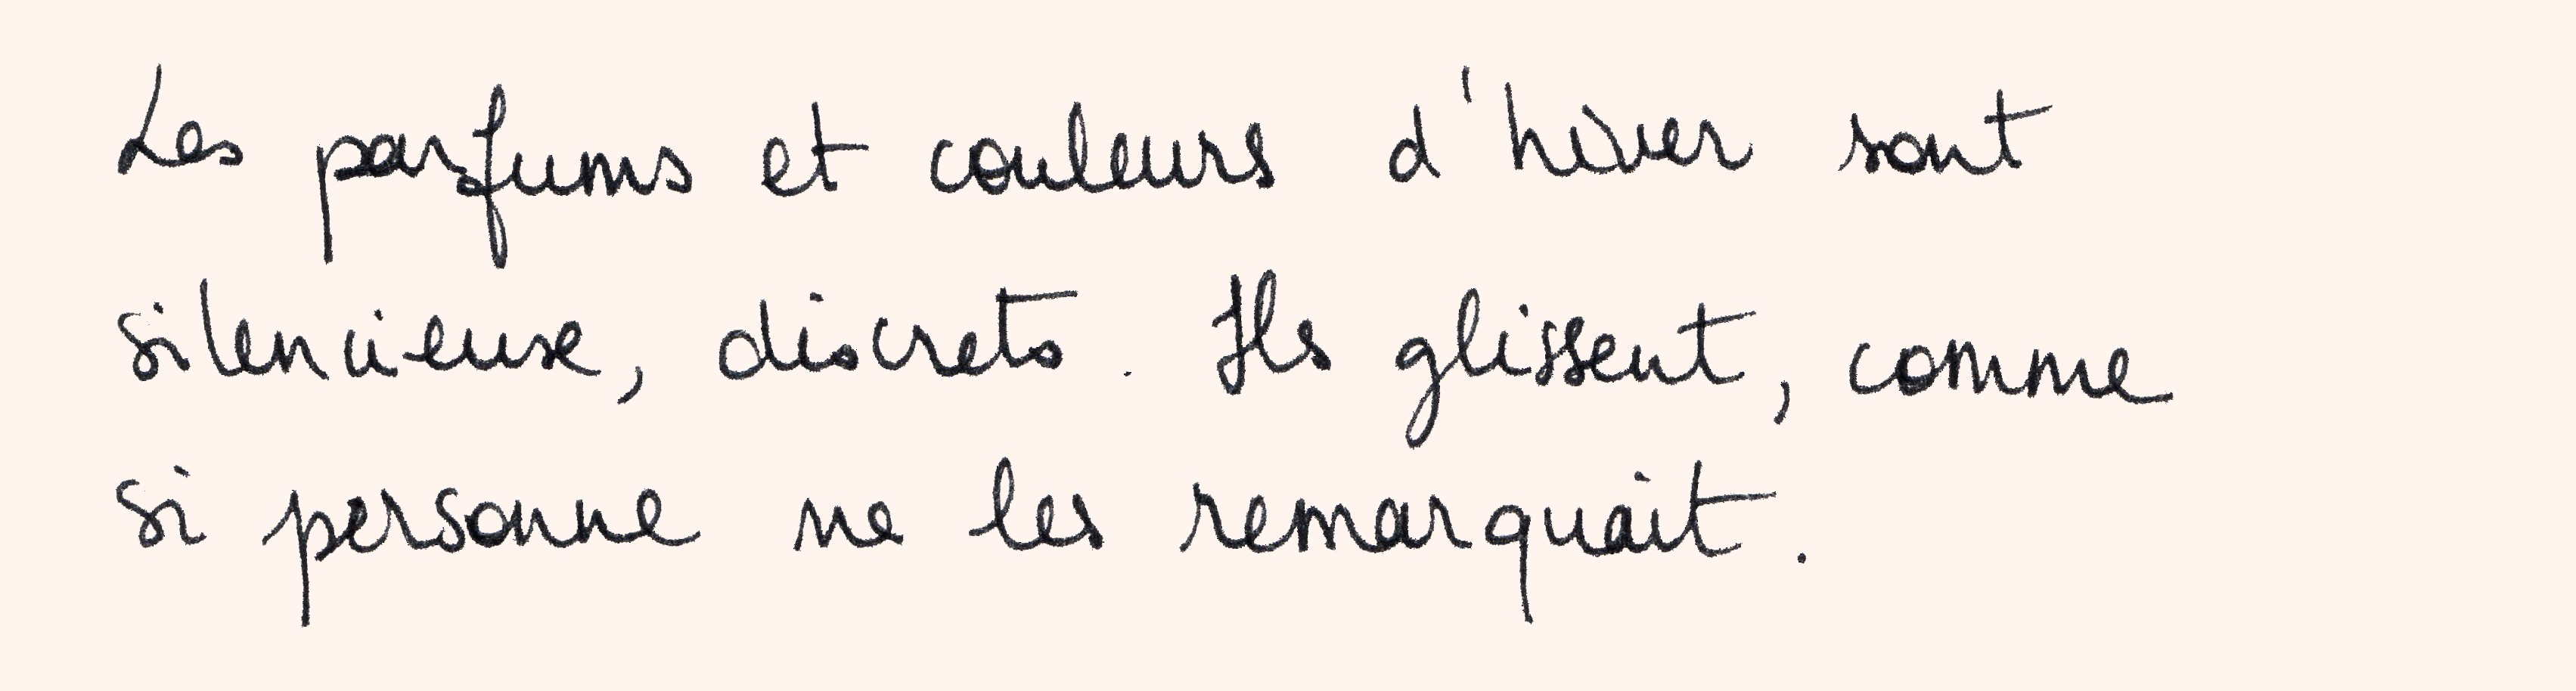 Les parfums et couleurs d'hiver sont
silencieuse, discrets. Ils glissent, comme
si personne ne les remarquait.